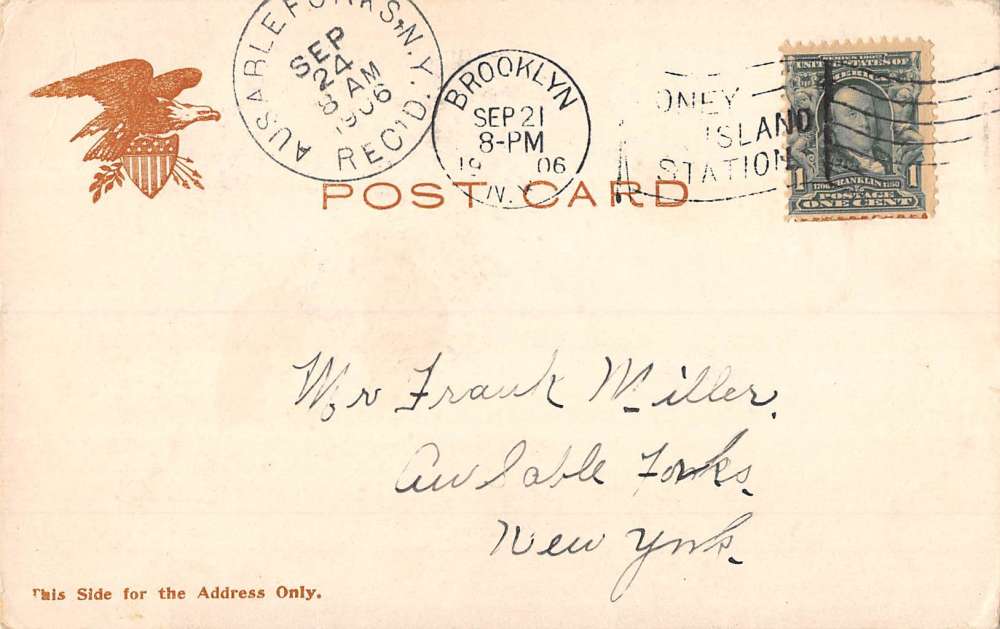 AUSABLE FORKS, N.Y.
SEP
24
8 AM
1906
REC'D.
BROOKLYN
SEP 21
8-PM
19 06
N.Y.
ONEY
ISLAND
STATION
SERIES 1902
UNITED STATES OF
AMERICA
1 1
1706 FRANKLIN 1790
POSTAGE
ONE CENT
POST CARD
Mr Frank Miller.
Au Sable Forks.
New York.
This Side for the Address Only.